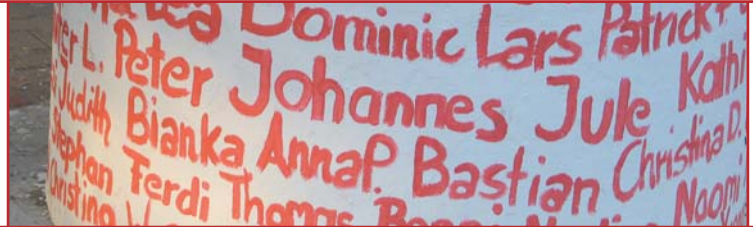 Dominic Lars Patrick
L. Peter Johannes Jule
Judith Bianka AnnaP. Bastian Christina D.
Stephan Ferdi Thomas Naomi